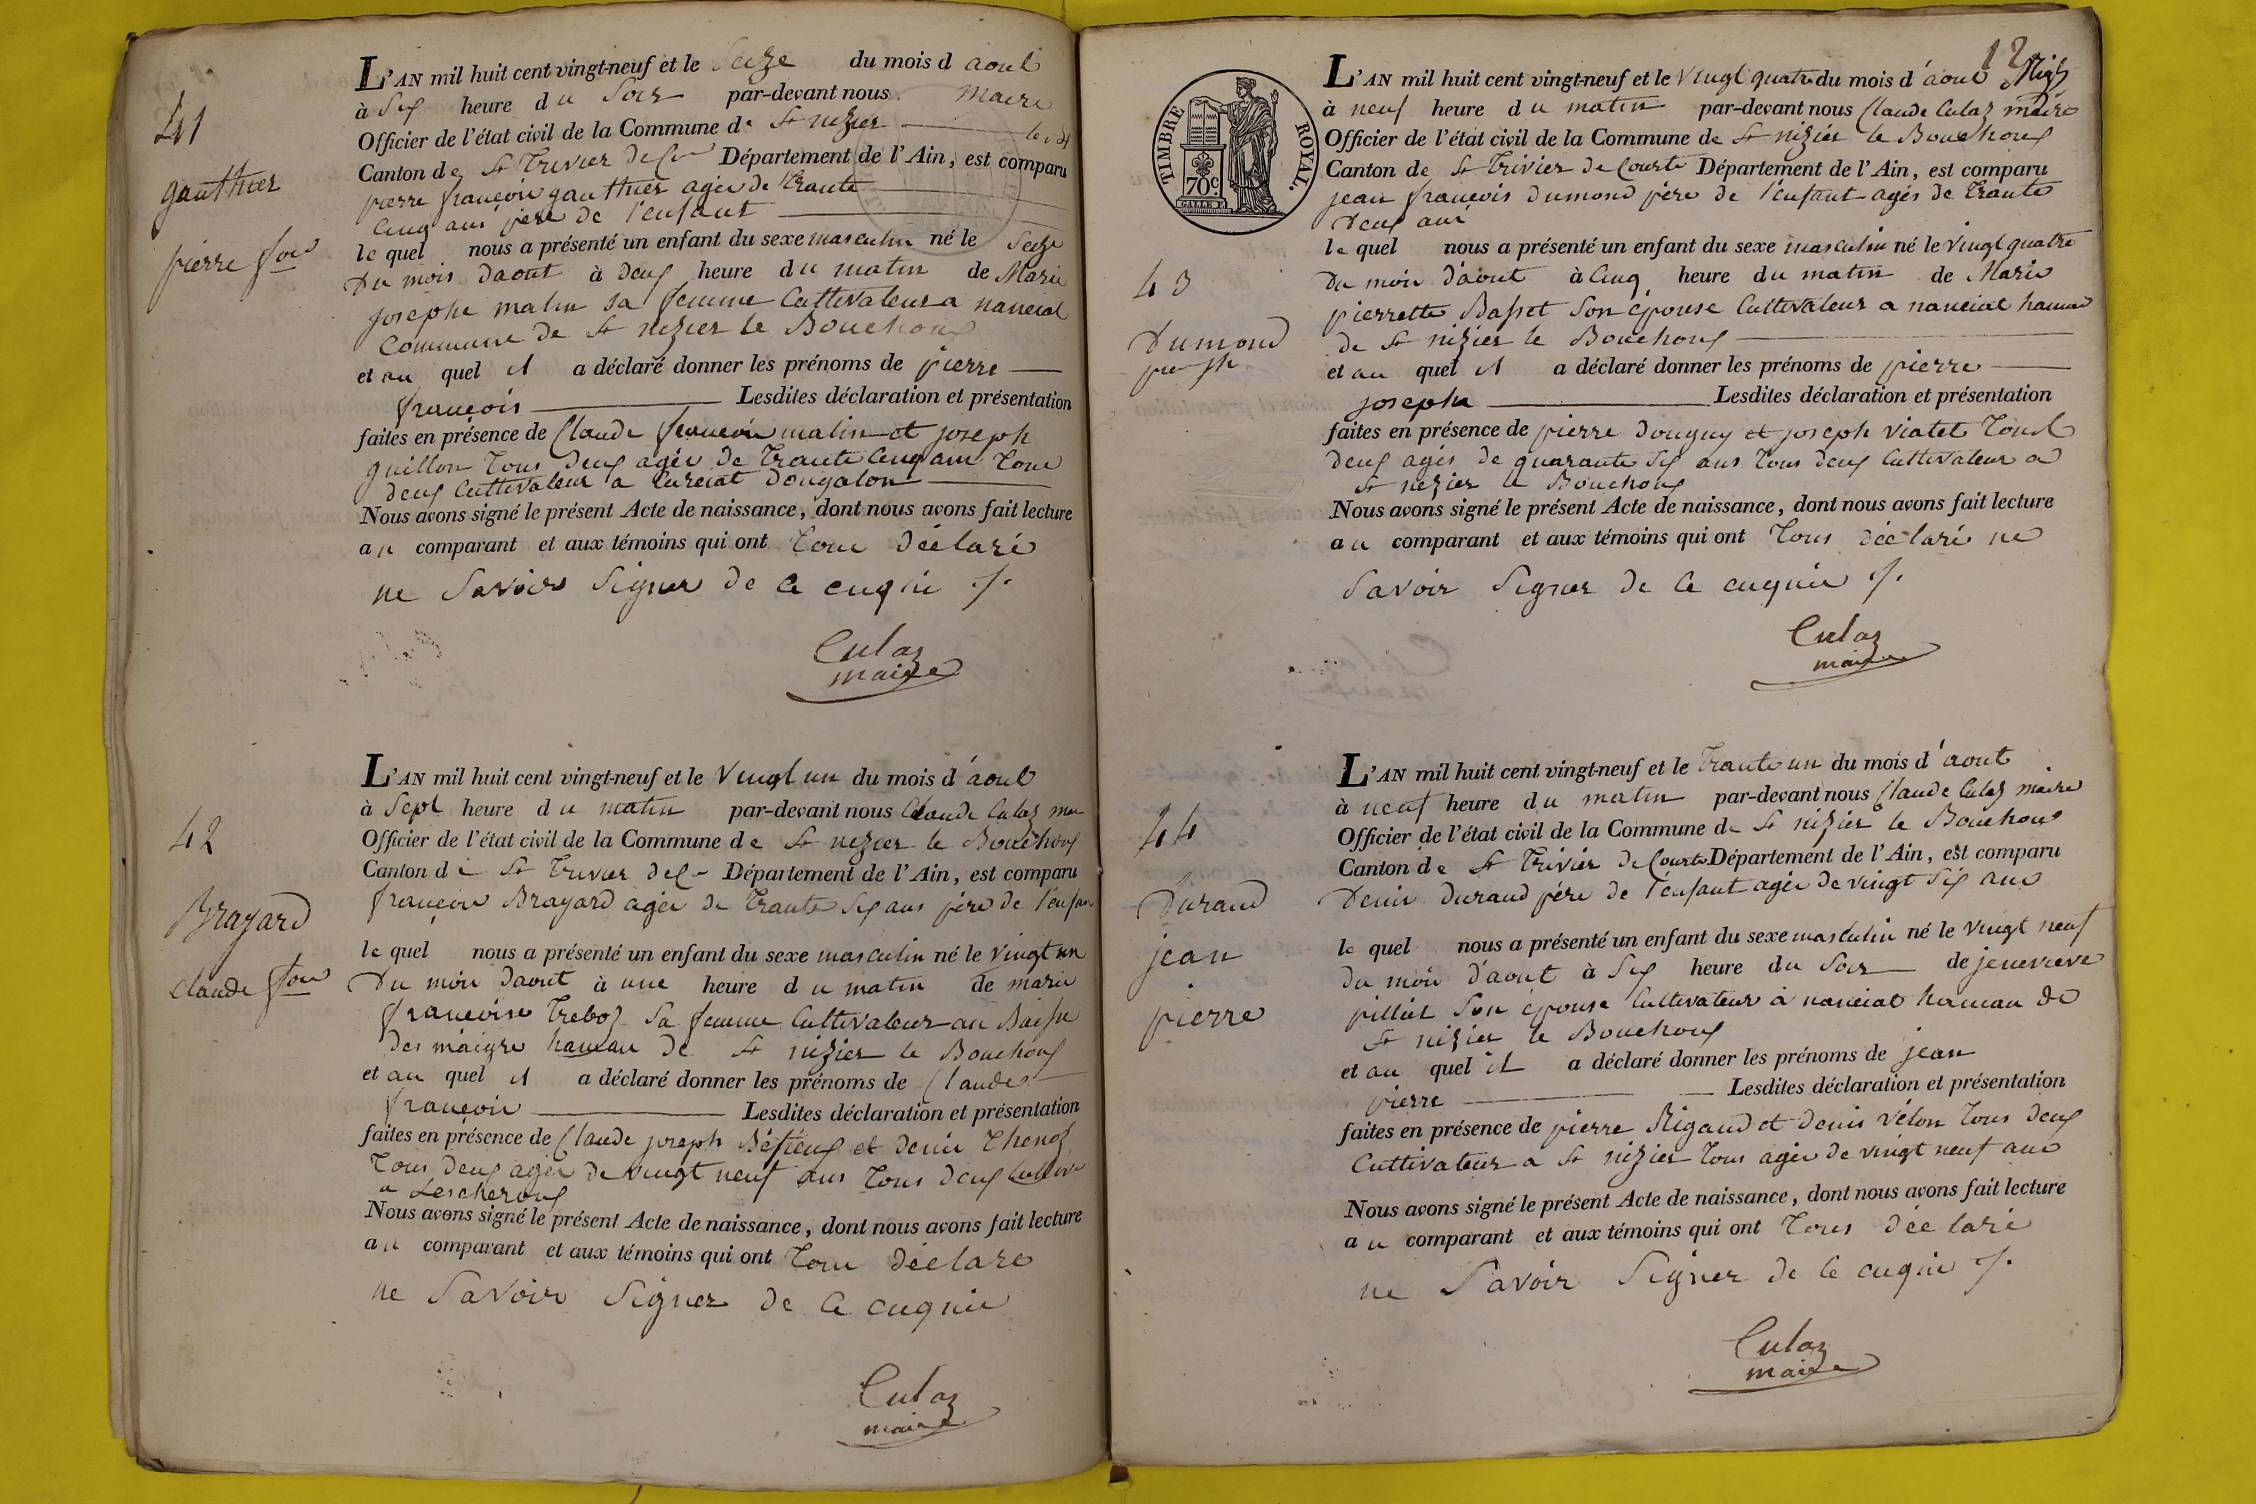 41
gauthier
pierre fois
L'AN mil huit cent vingt-neuf et le Seize du mois d aout
à Six heure du Soir par-devant nous Maire
Officier de l'état civil de la Commune de St nizier
Canton de St Trivier de Cr Département de l'Ain, est comparu
pierre françois gauthier agée de trante
Cinq ans père de l'enfant
le quel nous a présenté un enfant du sexe masculin né le Seize
Du mois daout à deux heure du matin de Marie
josephe matin sa femme Cultivateur a nanciat
Commune de St nizier le Bouchoux
et au quel il a déclaré donner les prénoms de pierre
françois Lesdites déclaration et présentation
faites en présence de Claude françois matin et joseph
guillon Tous deux agée de Trante Cinq ans Tous
deux Cultivateur a Curciat dongalon
Nous avons signé le présent Acte de naissance, dont nous avons fait lecture
au comparant et aux témoins qui ont Tous déclaré
ne Savoir Signer de ce enquis
Culaz
maire
42
Brayard
Claude fois
L'AN mil huit cent vingt-neuf et le Vingt un du mois d'aout
à Sept heure du matin par-devant nous Claude Culaz mai
Officier de l'état civil de la Commune de St nizier le Bouchoux
Canton de St Trivier de C Département de l'Ain, est comparu
françois Brayard agée de Trante Six ans père de l'enfan
le quel nous a présenté un enfant du sexe masculin né le vingt un
Du mois daout à une heure du matin de marie
françoise Treboz Sa femme Cultivateur au
Des maigre hameau de St nizier le Bouchoux
et au quel il a déclaré donner les prénoms de Claude
françois Lesdites déclaration et présentation
faites en présence de Claude joseph et denis Thenoz
Tous deux agée de vingt neuf ans Tous deux Cultiva
a Lescheroux
Nous avons signé le présent Acte de naissance, dont nous avons fait lecture
au comparant et aux témoins qui ont Tous déclaré
ne Savoir Signer de ce enquis
Culaz
maire
12
TIMBRE ROYAL.
70c
43
Dumond
pre jph
L'AN mil huit cent vingt-neuf et le Vingt quatre du mois d'aout
à neuf heure du matin par-devant nous Claude Culaz maire
Officier de l'état civil de la Commune de St nizier le Bouchoux
Canton de St Trivier de Courte Département de l'Ain, est comparu
jean françois dumond père de l'enfant agés de Trante
Deux ans
le quel nous a présenté un enfant du sexe masculin né le vingt quatre
Du mois d'aout à Cinq heure du matin de Marie
pierrette Basset Son épouse Cultivateur a nanciat hameau
de St nizier le Bouchoux
et au quel il a déclaré donner les prénoms de pierre
joseph Lesdites déclaration et présentation
faites en présence de pierre donguy et joseph viatet Tous
deux agés de quarante Six ans Tous deux Cultivateur a
St nizier le Bouchoux
Nous avons signé le présent Acte de naissance, dont nous avons fait lecture
au comparant et aux témoins qui ont Tous déclaré ne
Savoir Signer de ce enquis
Culaz
maire
44
Durand
jean
pierre
L'AN mil huit cent vingt-neuf et le Trante un du mois d'aout
à neuf heure du matin par-devant nous Claude Culaz maire
Officier de l'état civil de la Commune de St nizier le Bouchoux
Canton de St Trivier de Courte Département de l'Ain, est comparu
Denis Durand père de l'enfant agée de vingt Six ans
le quel nous a présenté un enfant du sexe masculin né le vingt neuf
du mois d'aout à Six heure du Soir de jenevieve
pillat Son épouse Cultivateur à nanciat hameau de
St nizier le Bouchoux
et au quel il a déclaré donner les prénoms de jean
pierre Lesdites déclaration et présentation
faites en présence de pierre Rigaud et denis vélon Tous deux
Cultivateur a St nizier Tous agée de vingt neuf ans
Nous avons signé le présent Acte de naissance, dont nous avons fait lecture
au comparant et aux témoins qui ont Tous déclaré
ne Savoir Signer de ce enquis
Culaz
maire